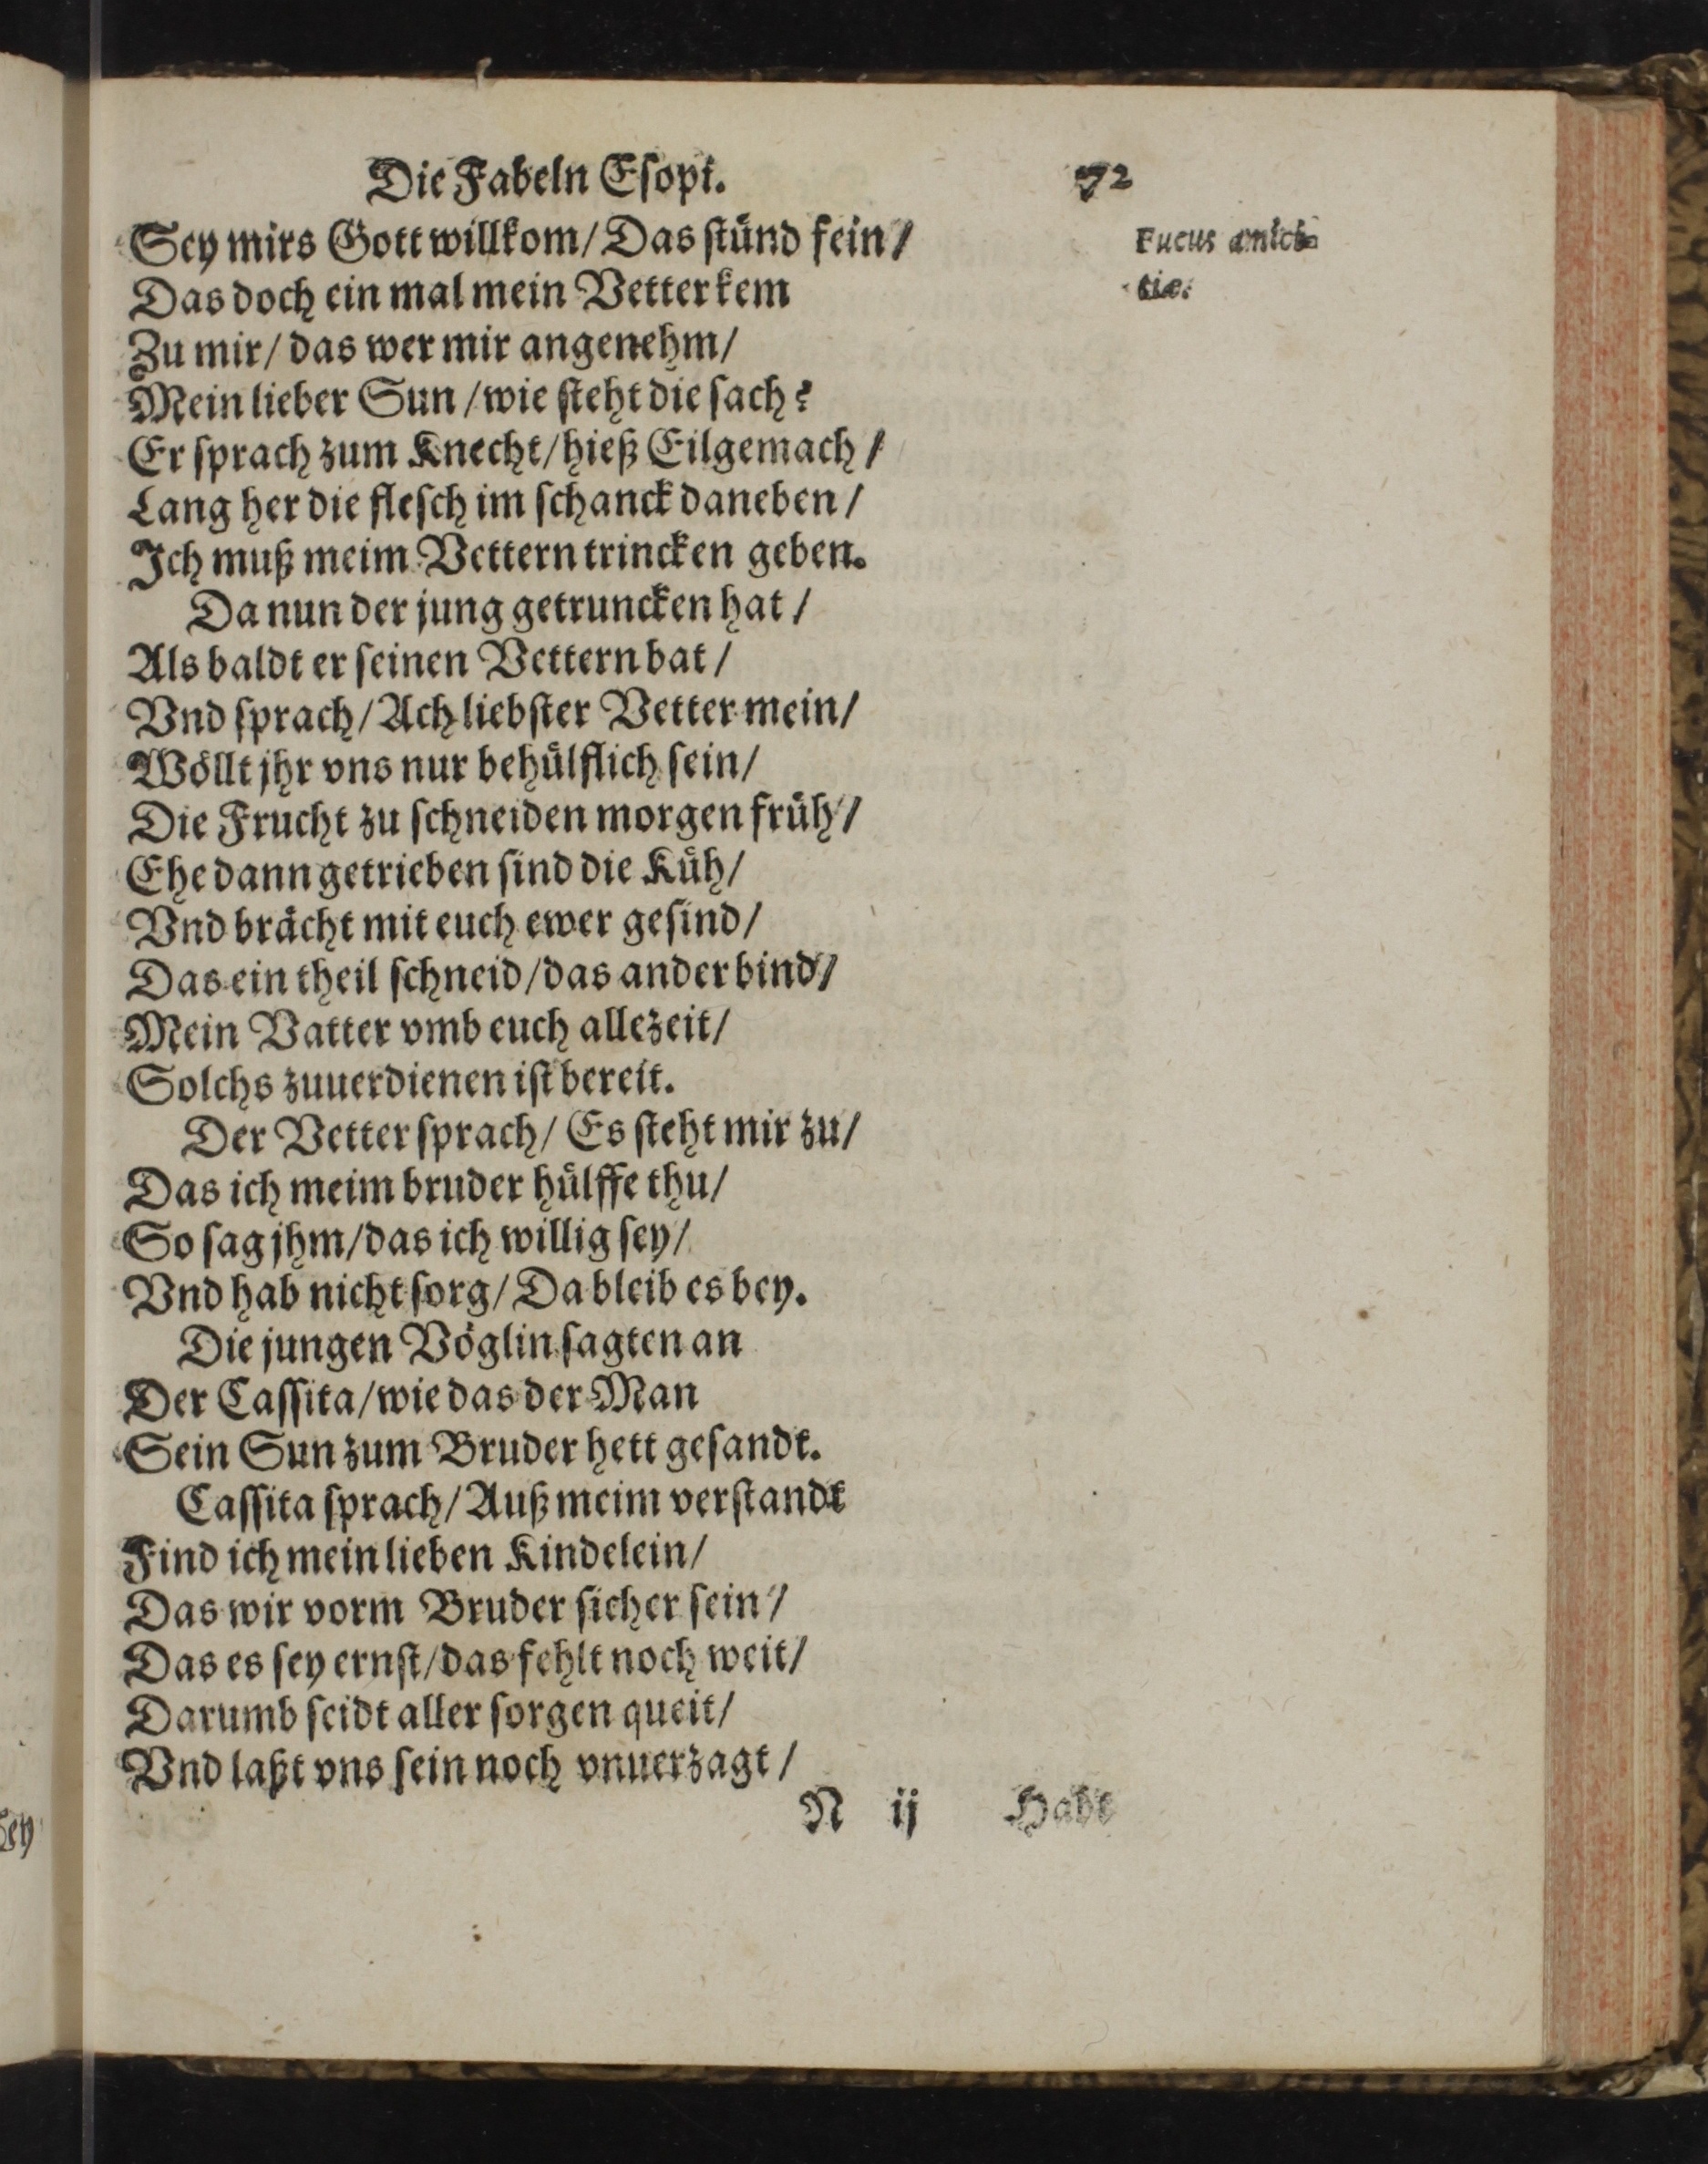 Die Fabeln Esopi. 72
Sey mirs Gott willkom/ Das stünd fein/
Fucus amici-
tiæ.
Das doch ein mal mein Vetter kem
Zu mir/ das wer mir angenehm/
Mein lieber Sun / wie steht die sach?
Er sprach zum Knecht/ hieß Eilgemach /
Lang her die flesch im schanck daneben /
Ich muß meim Vettern trincken geben.
Da nun der jung getruncken hat /
Als baldt er seinen Vettern bat /
Vnd sprach/ Ach liebster Vetter mein/
Wöllt jhr vns nur behülflich sein/
Die Frucht zu schneiden morgen früh/
Ehe dann getrieben sind die Küh/
Vnd brächt mit euch ewer gesind/
Das ein theil schneid/ das ander bind/
Mein Vatter vmb euch allezeit/
Solchs zuuerdienen ist bereit.
Der Vetter sprach/ Es steht mir zu/
Das ich meim bruder hülffe thu/
So sag jhm/ das ich willig sey/
Vnd hab nicht sorg/ Da bleib es bey.
Die jungen Vöglin sagten an
Der Cassita/ wie das der Man
Sein Sun zum Bruder hett gesandt.
Cassita sprach/ Auß meim verstandt
Find ich mein lieben Kindelein/
Das wir vorm Bruder sicher sein/
Das es sey ernst/ das fehlt noch weit/
Darumb seidt aller sorgen queit/
Vnd laßt vns sein noch vnuerzagt /
N ij Habt